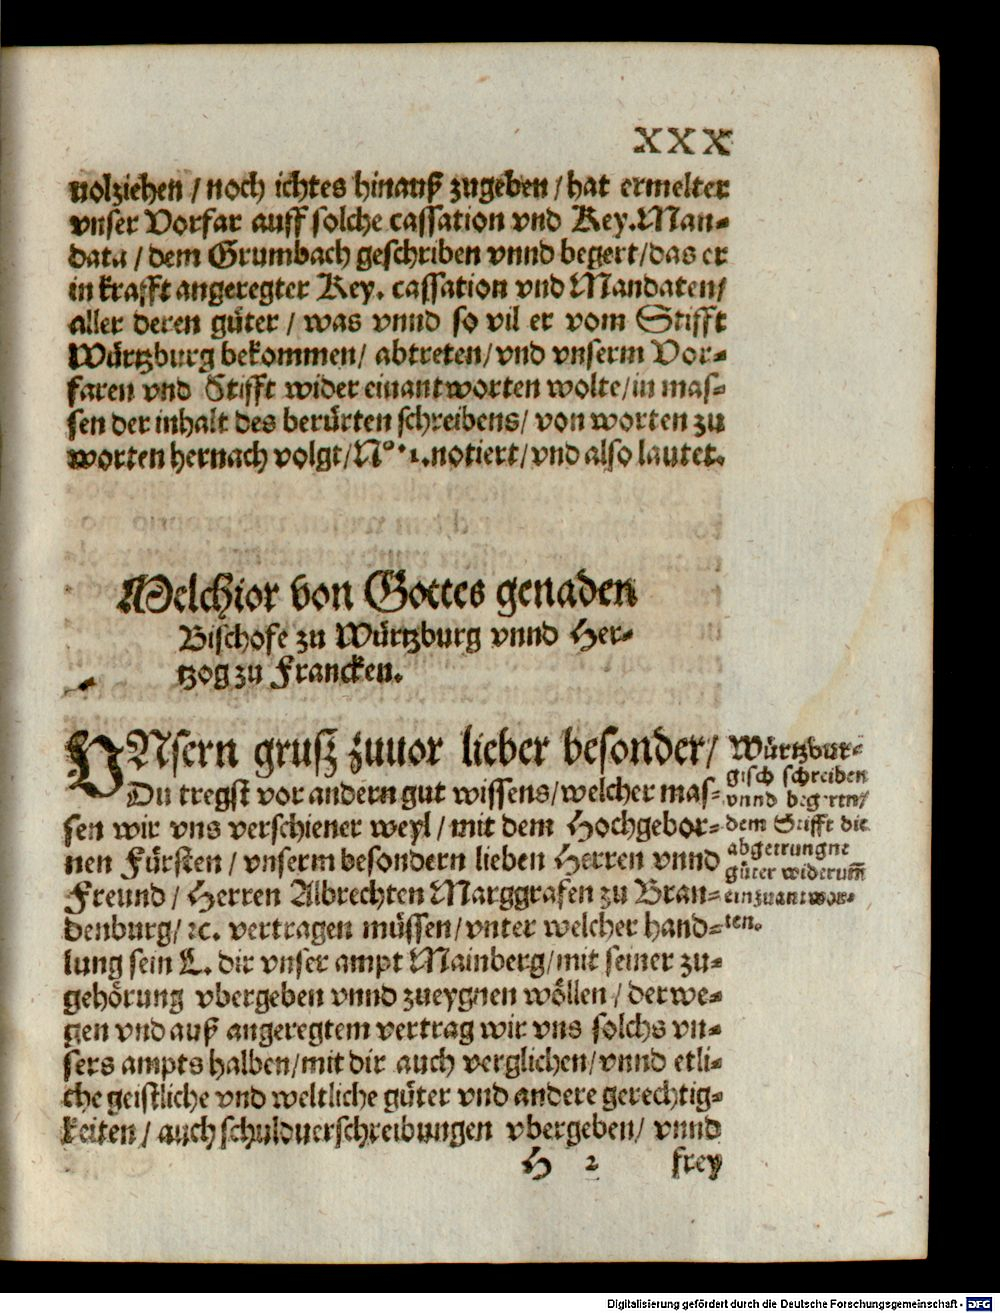 XXX
volziehen / noch ichtes hinauß zugeben / hat ermelter
vnser Vorfar auff solche cassation vnd Key. Man-
data / dem Grumbach geschriben vnnd begert / das er
in krafft angeregter Key. cassation vnd Mandaten /
aller deren güter / was vnnd so vil er vom Stifft
Würtzburg bekommen / abtreten / vnd vnserm Vor-
faren vnd Stifft wider einantworten wolte / in mas-
sen der inhalt des berürten schreibens / von worten zu
worten hernach volgt / No. 1. notiert / vnd also lautet.
Melchior von Gottes genaden
Bischofe zu Würtzburg vnnd Her-
tzog zu Francken.
VNsern grusz zuuor lieber besonder /
Du tregst vor andern gut wissens / welcher mas-
sen wir vns verschiener weyl / mit dem Hochgebor-
nen Fürsten / vnserm besondern lieben Herren vnnd
Freund / Herren Albrechten Marggrafen zu Bran-
denburg / ꝛc. vertragen müssen / vnter welcher hand-
lung sein L. dir vnser ampt Mainberg / mit seiner zu-
gehörung vbergeben vnnd zueygnen wöllen / derwe-
gen vnd auß angeregtem vertrag wir vns solchs vn-
sers ampts halben / mit dir auch verglichen / vnnd etli-
che geistliche vnd weltliche güter vnd andere gerechtig-
keiten / auch schulduerschreibungen vbergeben / vnnd
Würtzbur-
gisch schreiben
vnnd begeren /
dem Stifft die
abgetrungne
güter widerum̃
einzuantwor-
ten.
H 2 frey
Digitalisierung gefördert durch die Deutsche Forschungsgemeinschaft - DFG